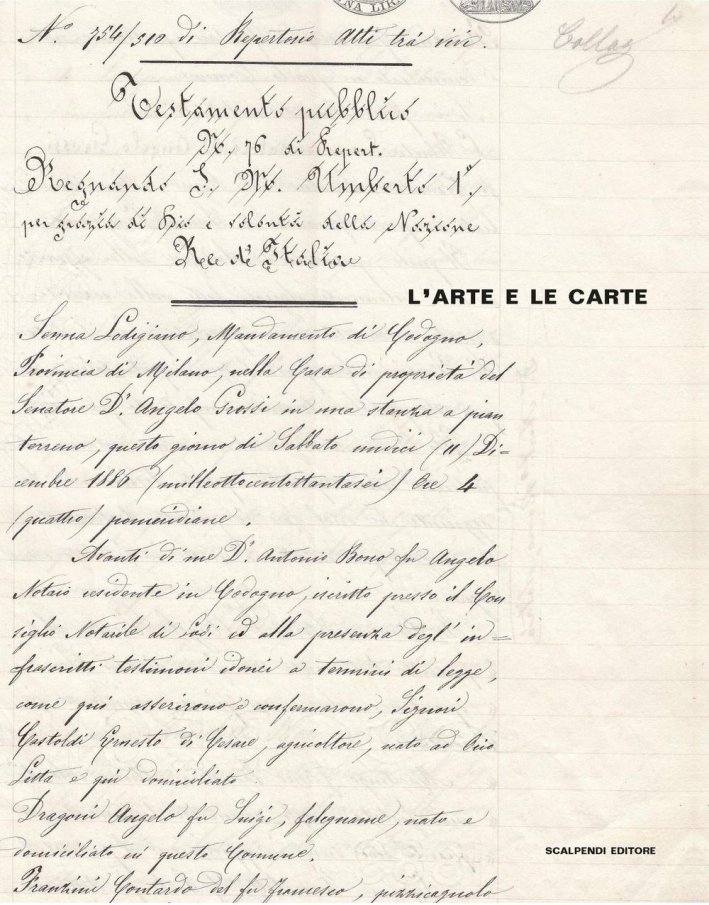 NA LIR
N.º 754/510 di Repertorio Atti tra vivi.
Testamento pubblico
N. 76 di Repert.
Regnando S. M. Umberto 1º,
per grazia di Dio e volontà della Nazione
Re d'Italia
L'ARTE E LE CARTE
Senna Lodigiano, Mandamento di Codogno,
Provincia di Milano, nella Casa di proprietà del
Senatore D.r Angelo Grossi in una stanza a pian
terreno, questo giorno di Sabbato undici (11) Di=
cembre 1886 (milleottocentottantasei) Ore 4
(quattro) pomeridiane.
Avanti di me D.r Antonio Bono fu Angelo
Notaio residente in Codogno, iscritto presso il Con
siglio Notarile di Lodi ed alla presenza degl' in=
frascritti testimoni idonei a termini di legge,
come qui asserirono e confermarono, Signori
Castoldi Ernesto di Cesare, agricoltore, nato ad Orio
Litta e qui domiciliato.
Dragoni Angelo fu Luigi, falegname, nato e
domiciliato in questo Comune.
Franzini Contardo del fu Francesco, pizzicagnolo
SCALPENDI EDITORE